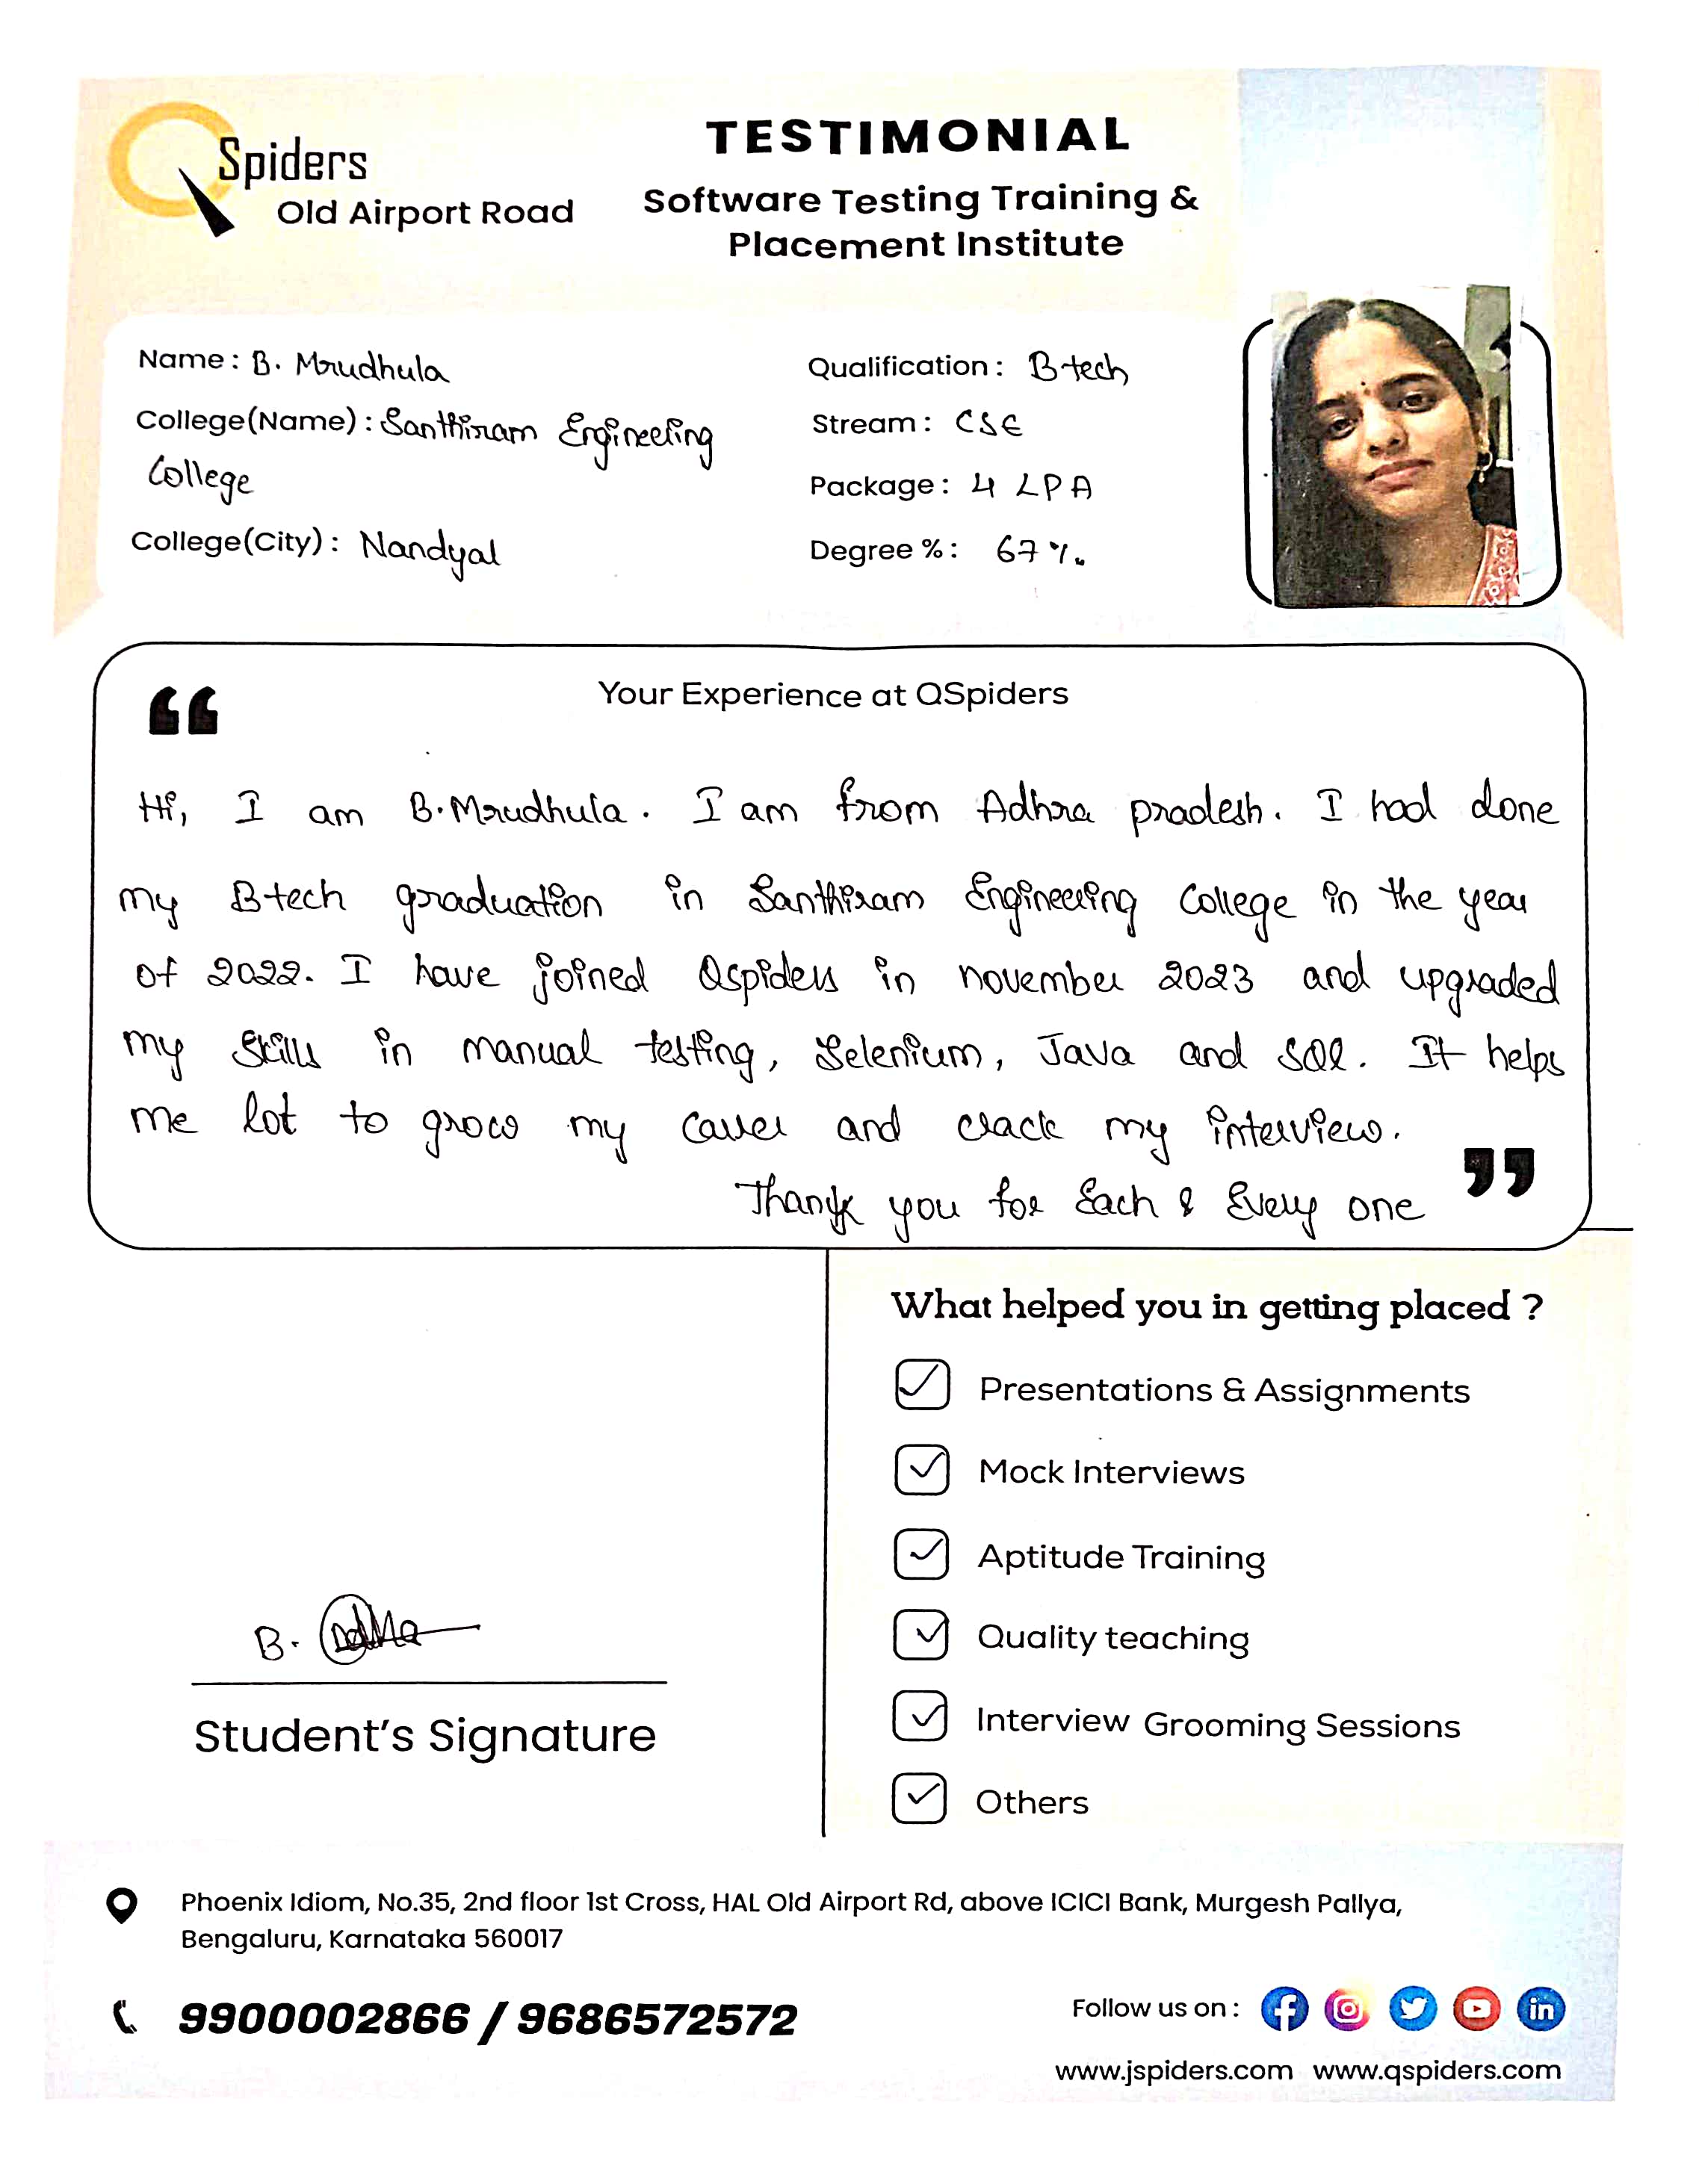 Spiders
Old Airport Road
TESTIMONIAL
Software Testing Training &
Placement Institute
Name : B. Mrudhula
College(Name) : Santhiram Engineering
College
College(City) : Nandyal
Qualification : B-tech
Stream : CSE
Package : 4 LPA
Degree % : 67 %.
Your Experience at QSpiders
Hi, I am B. Mrudhula. I am from Adhra pradesh. I had done
my B-tech graduation in Santhiram Engineering College in the year
of 2022. I have joined Qspiders in november 2023 and upgraded
my skills in manual testing, Selenium, Java and SQL. It helps
me lot to grow my career and crack my interview.
Thank you for Each & Every one
What helped you in getting placed ?
Presentations & Assignments
Mock Interviews
Aptitude Training
Quality teaching
Interview Grooming Sessions
Others
B.
Student's Signature
Phoenix Idiom, No.35, 2nd floor 1st Cross, HAL Old Airport Rd, above ICICI Bank, Murgesh Pallya,
Bengaluru, Karnataka 560017
9900002866 / 9686572572
Follow us on :
www.jspiders.com www.qspiders.com